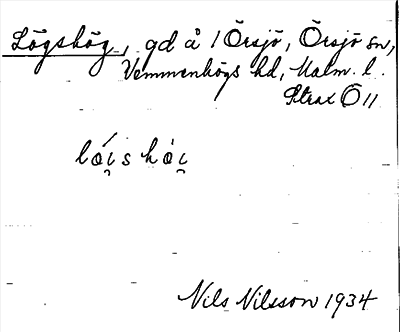 Lögshög, gd å 1 Örsjö, Örsjö sn,
Vemmenhögs hd, Malm. l.
Strax Ö 11
lói̯s hȯi̯
Nils Nilsson 1934